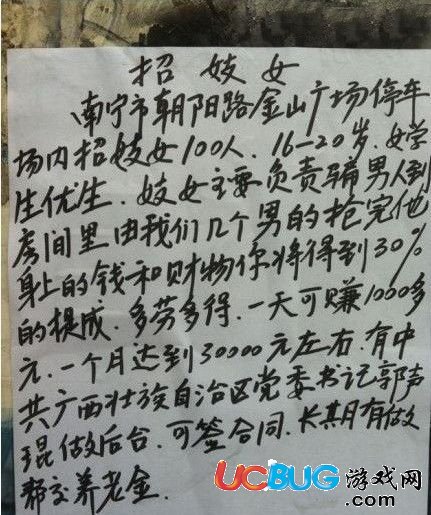 招妓女
南宁市朝阳路金山广场停车
场内招妓女100人.16-20岁.女学
生优生.妓女主要负责骗男人到
房间里.由我们几个男的抢完他
身上的钱和财物你将得到30%
的提成.多劳多得.一天可赚1000多
元.一个月达到30000元左右.有中
共广西壮族自治区党委书记郭声
琨做后台.可签合同.长期有做
帮交养老金.
UCBUG游戏网
.com